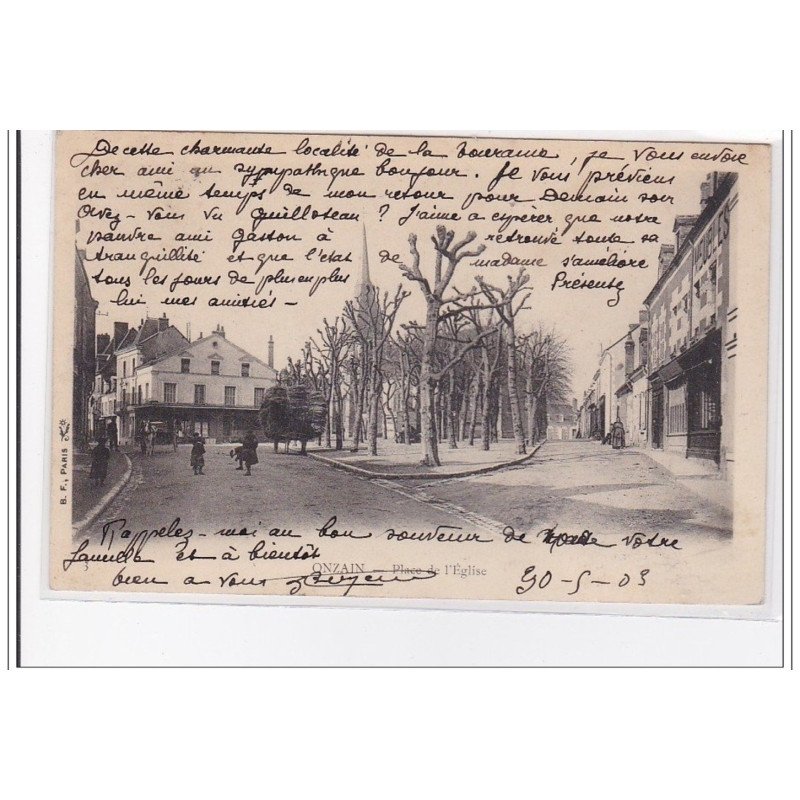 De cette charmante localité de la Touraine, je vous envoie
cher ami un sympathique bonjour. Je vous préviens
en même temps de mon retour pour Demain soir
Avez-vous vu Guilloteau ? J'aime a espérer que notre
pauvre ami Gaston à retrouvé toute sa
tranquillité et que l'état de madame s'améliore
tous les jours de plus en plus Présentez
lui mes amitiés –
NOUVELLES
B. F., PARIS
Rappelez-moi au bon souvenir de toute votre
famille et à bientôt
ONZAIN — Place de l'Église
bien a vous
30-5-03